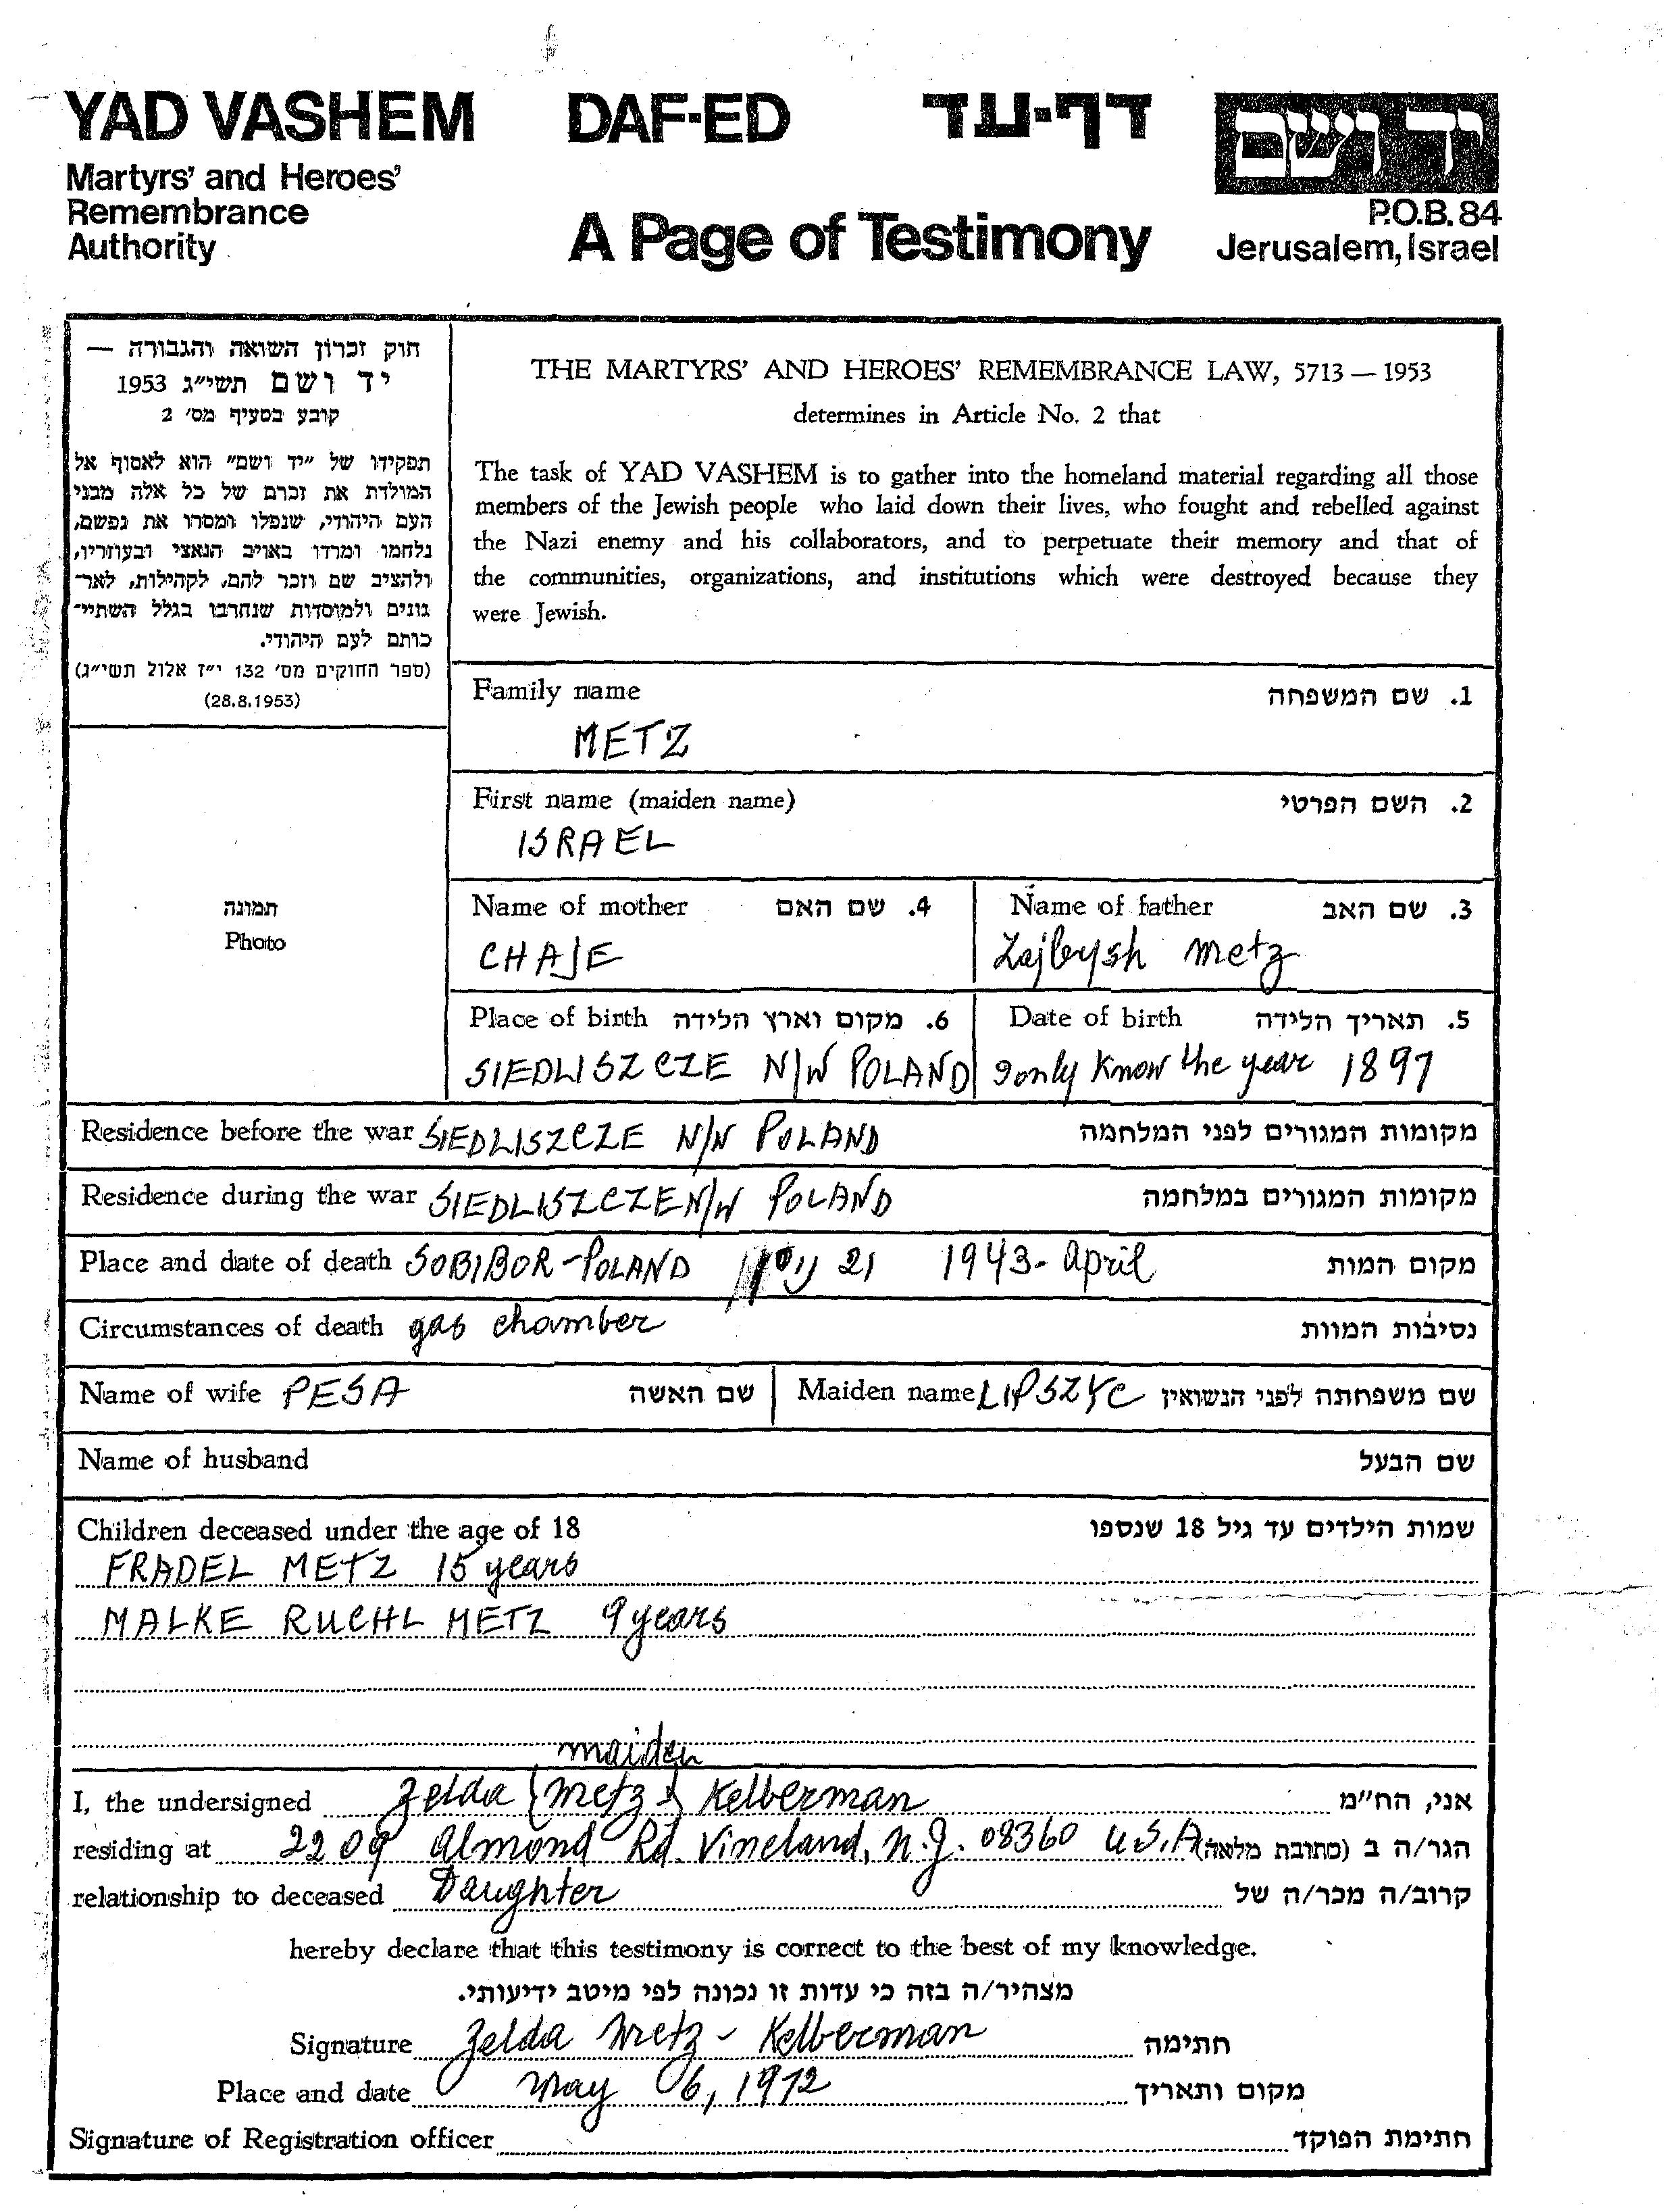 YAD VASHEM DAF-ED דף-עד יד ושם
Martyrs' and Heroes'
Remembrance
Authority
A Page of Testimony
P.O.B. 84
Jerusalem, Israel
חוק זכרון השואה והגבורה —
יד ושם תשי״ג 1953
קובע בסעיף מס׳ 2
תפקידו של ״יד ושם״ הוא לאסוף אל
המולדת את זכרם של כל אלה מבני
העם היהודי, שנפלו ומסרו את נפשם,
נלחמו ומרדו באויב הנאצי ובעוזריו,
ולהציב שם וזכר להם, לקהילות, לאר־
גונים ולמוסדות שנחרבו בגלל השתיי־
כותם לעם היהודי.
(ספר החוקים מס׳ 132 י״ז אלול תשי״ג)
(28.8.1953)
THE MARTYRS' AND HEROES' REMEMBRANCE LAW, 5713 — 1953
determines in Article No. 2 that
The task of YAD VASHEM is to gather into the homeland material regarding all those
members of the Jewish people who laid down their lives, who fought and rebelled against
the Nazi enemy and his collaborators, and to perpetuate their memory and that of
the communities, organizations, and institutions which were destroyed because they
were Jewish.
תמונה
Photo
Family name 1. שם המשפחה
METZ
First name (maiden name) 2. השם הפרטי
ISRAEL
Name of mother 4. שם האם Name of father 3. שם האב
CHAJE Lajbysh Metz
Place of birth 6. מקום וארץ הלידה Date of birth 5. תאריך הלידה
SIEDLISZCZE N/W POLAND I only know the year 1897
Residence before the war SIEDLISZCZE N/W POLAND מקומות המגורים לפני המלחמה
Residence during the war SIEDLISZCZE N/W POLAND מקומות המגורים במלחמה
Place and date of death SOBIBOR - POLAND 21 1943 - April מקום המות
Circumstances of death gas chamber נסיבות המוות
Name of wife PESA שם האשה Maiden name LIPSZYC שם משפחתה לפני הנשואין
Name of husband שם הבעל
Children deceased under the age of 18 שמות הילדים עד גיל 18 שנספו
FRADEL METZ 15 years
MALKE RUCHL METZ 9 years
maiden
I, the undersigned Zelda (Metz) Kelberman אני, הח״מ
residing at 2209 Almond Rd. Vineland, N.J. 08360 U.S.A הגר/ה ב (כתובת מלאה)
relationship to deceased Daughter קרוב/ה מכר/ה של
hereby declare that this testimony is correct to the best of my knowledge.
מצהיר/ה בזה כי עדות זו נכונה לפי מיטב ידיעותי.
Signature Zelda Metz - Kelberman חתימה
Place and date May 6, 1972 מקום ותאריך
Signature of Registration officer חתימת הפוקד